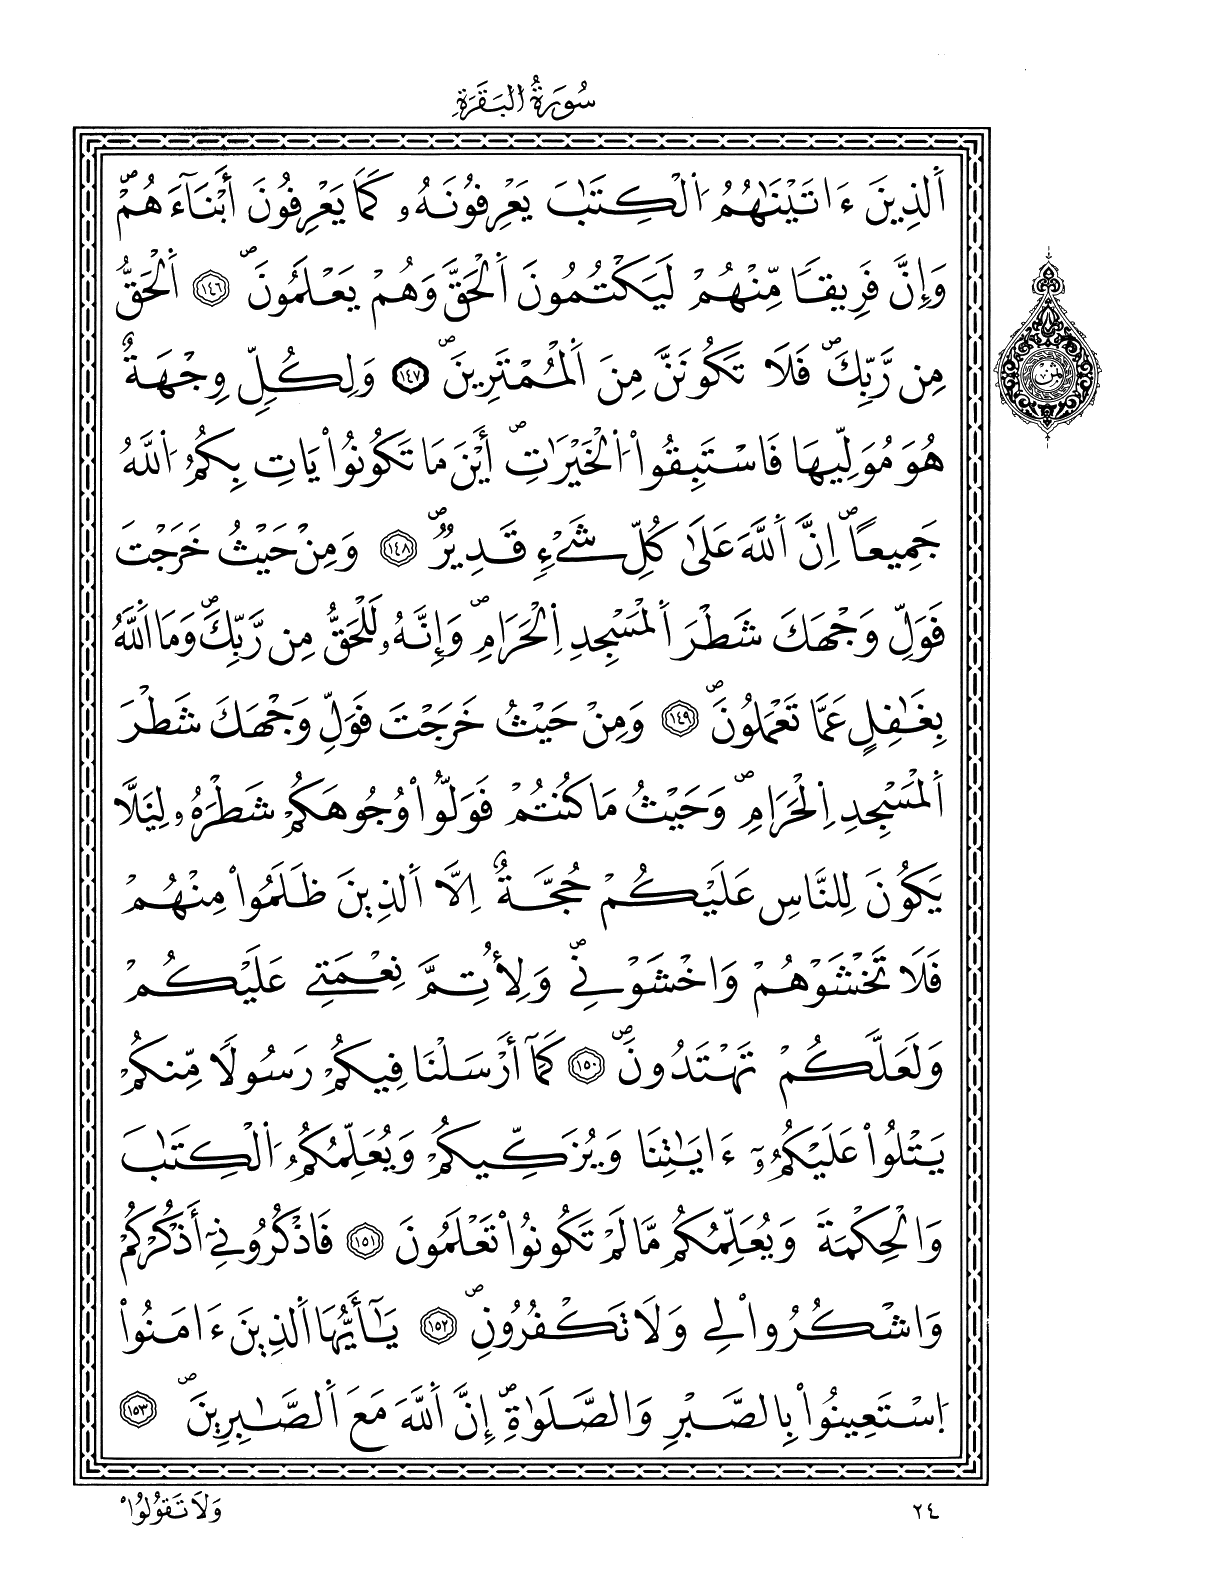 سُورَةُ الْبَقَرَةِ
اَ۬لذِينَ ءَاتَيْنَٰهُمُ اُ۬لْكِتَٰبَ يَعْرِفُونَهُۥ كَمَا يَعْرِفُونَ أَبْنَآءَهُمْۖ
وَإِنَّ فَرِيقاٗ مِّنْهُمْ لَيَكْتُمُونَ اَ۬لْحَقَّ وَهُمْ يَعْلَمُونَۖ ١٤٦ اَ۬لْحَقُّ
مِن رَّبِّكَۖ فَلَا تَكُونَنَّ مِنَ اَ۬لْمُمْتَرِينَۖ ١٤٧ وَلِكُلّٖ وِجْهَةٌ
هُوَ مُوَلِّيهَا فَاسْتَبِقُواْ اُ۬لْخَيْرَٰتِۖ أَيْنَ مَا تَكُونُواْ يَاتِ بِكُمُ اُ۬للَّهُ
جَمِيعاًۖ اِنَّ اَ۬للَّهَ عَلَىٰ كُلِّ شَےْءٖ قَدِيرٞۖ ١٤٨ وَمِنْ حَيْثُ خَرَجْتَ
فَوَلِّ وَجْهَكَ شَطْرَ اَ۬لْمَسْجِدِ اِ۬لْحَرَامِۖ وَإِنَّهُۥ لَلْحَقُّ مِن رَّبِّكَۖ وَمَا اَ۬للَّهُ
بِغَٰفِلٍ عَمَّا تَعْمَلُونَۖ ١٤٩ وَمِنْ حَيْثُ خَرَجْتَ فَوَلِّ وَجْهَكَ شَطْرَ
اَ۬لْمَسْجِدِ اِ۬لْحَرَامِۖ وَحَيْثُ مَا كُنتُمْ فَوَلُّواْ وُجُوهَكُمْ شَطْرَهُۥ لِيَلَّا
يَكُونَ لِلنَّاسِ عَلَيْكُمْ حُجَّةٌ اِلَّا اَ۬لذِينَ ظَلَمُواْ مِنْهُمْ
فَلَا تَخْشَوْهُمْ وَاخْشَوْنِےۖ وَلِأُتِمَّ نِعْمَتِے عَلَيْكُمْ
وَلَعَلَّكُمْ تَهْتَدُونَۖ ١٥٠ كَمَآ أَرْسَلْنَا فِيكُمْ رَسُولاٗ مِّنكُمْ
يَتْلُواْ عَلَيْكُمُۥٓ ءَايَٰتِنَا وَيُزَكِّيكُمْ وَيُعَلِّمُكُمُ اُ۬لْكِتَٰبَ
وَالْحِكْمَةَ وَيُعَلِّمُكُم مَّا لَمْ تَكُونُواْ تَعْلَمُونَ ١٥١ فَاذْكُرُونِےٓ أَذْكُرْكُمْ
وَاشْكُرُواْ لِے وَلَا تَكْفُرُونِۖ ١٥٢ يَٰٓأَيُّهَا اَ۬لذِينَ ءَامَنُواْ
اُ۪سْتَعِينُواْ بِالصَّبْرِ وَالصَّلَوٰةِۖ إِنَّ اَ۬للَّهَ مَعَ اَ۬لصَّٰبِرِينَۖ ١٥٣
٢٤
وَلَا تَقُولُواْ